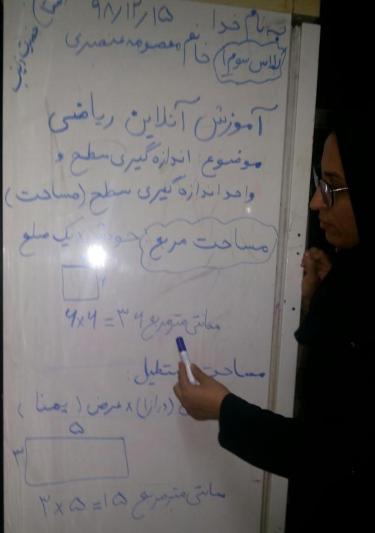 به نام خدا ۹۸/۱۲/۱۵
کلاس سوم خانم معصومه منتصری
آموزش آنلاین ریاضی
موضوع اندازه گیری سطح و
واحد اندازه گیری سطح (مساحت)
مساحت مربع: یک ضلع
۶×۶=۳۶ سانتی متر مربع
مساحت
(درازا) × عرض (پهنا)
۵
۳
۳×۵=۱۵ سانتی متر مربع